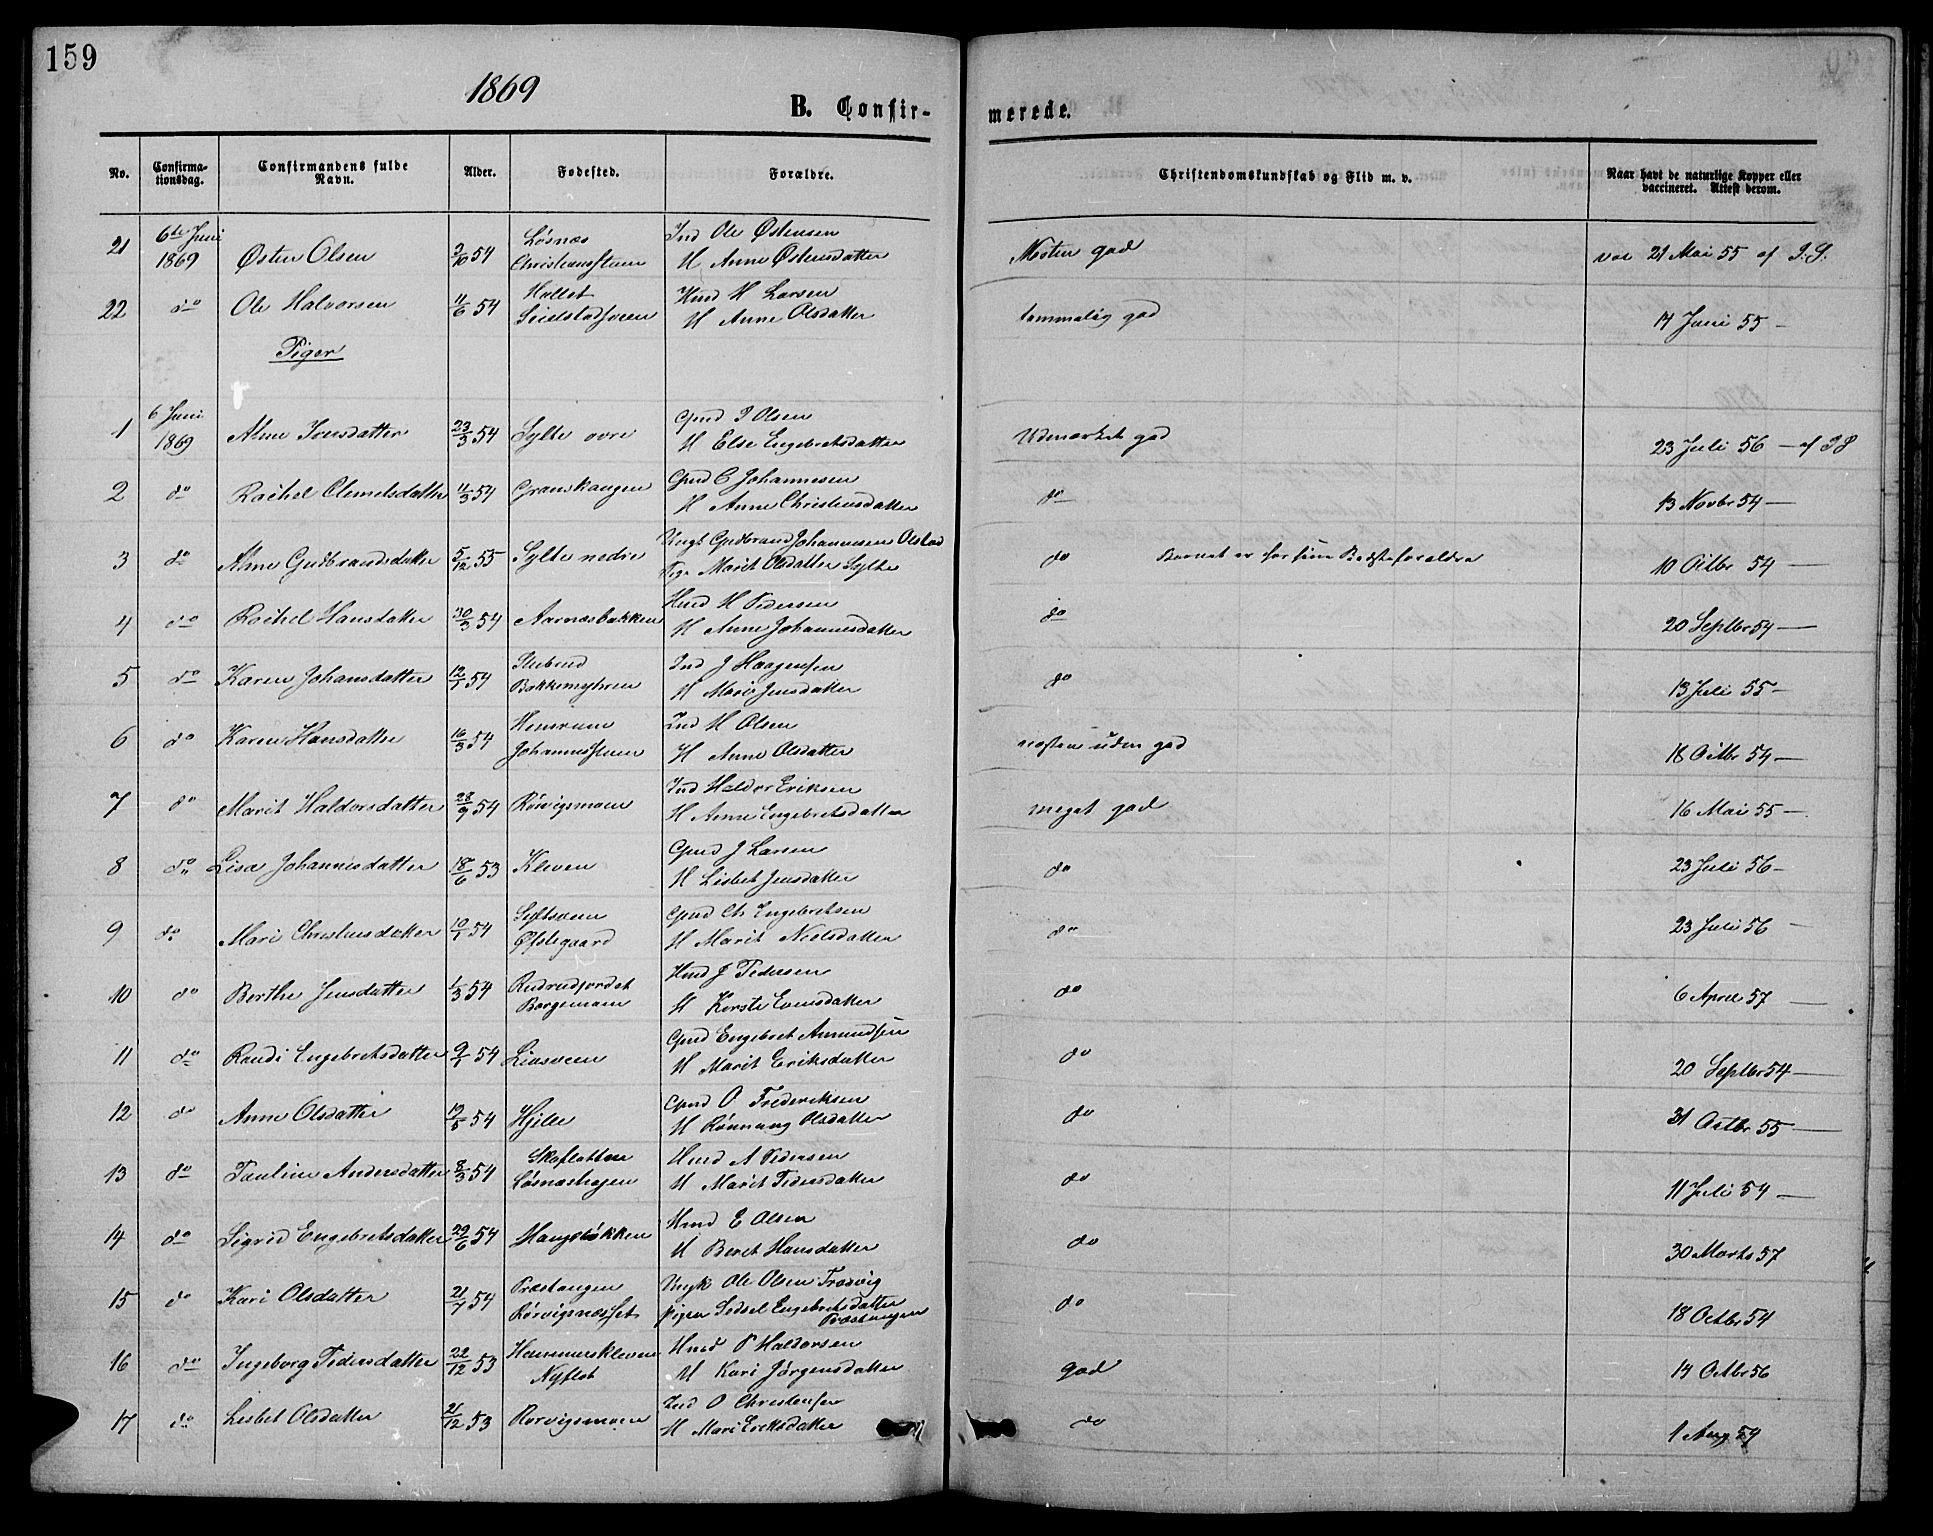 159
1869
B. Confir-
merede.
No.
Confirma-
tionsdag.
Confirmandens fulde
Navn.
Alder.
Fødested.
Forældre.
Christendomskundskab og Flid m. v.
Naar havt de naturlige Kopper eller
vaccineret. Attest derom.
21 6te Juni 1869 Østen Olsen 2/10 54 Løsnæs Christiansstuen Ind Ole Østensen
H Anne Østensdatter Næsten god vac 21 Mai 55 af
22 do Ole Halvorsen 11/6 54 Hmd H Larsen
H Anne Olsdatter temmelig god 14 Juni 55 -
Piger
1 6 Juni 1869 Anne Iversdatter 23/3 54 Sylte øvre Gmd I Olsen
H Else Engebretsdatter Udmærket god 23 Juli 56 - af
2 do Rachel Clemetsdatter 11/3 54 Gmd C Johannesen
H Anne Christensdatter do 13 Novbr 54 -
3 do Anne Gudbrandsdatter 5/12 55 Sylte nedre Ungk Gudbrand Johannesen Olstad
Pige Marit Olsdatter Sylte do Barnet er hos sine Bedsteforældre 10 Octbr 54 -
4 do Rachel Hansdatter 30/3 54 Aarnæsbakken Hmd H Pedersen
H Anne Johannesdatter do 20 Septbr 54 -
5 do Karen Johansdatter 12/7 54 Stubrud Bakkemyhren Ind J Haagensen
H Mari Jensdatter do 13 Juli 55 -
6 do Karen Hansdatter 16/3 54 Johannesstuen Ind H Olsen
H Anne Olsdatter næsten uden god 18 Octbr 54 -
7 do Marit Haldorsdatter 28/9 54 Rørvigsmoen Ind Haldor Eriksen
H Anne Engebretsdatter meget god 16 Mai 55 -
8 do Lisa Johannesdatter 18/6 53 Kleven Gmd J Larsen
H Lisbet Jensdatter do 23 Juli 56 -
9 do Mari Christensdatter 10/1 54 Øfstegaard Gmd Ch Engebretsen
H Marit Nielsdatter do 23 Juli 56 -
10 do Berthe Jensdatter 1/3 54 Rudrudjordet Borgemoen Hmd J Pedersen
H Kersti Evensdatter do 6 April 57 -
11 do Randi Engebretsdatter 9/1 54 Liasveen Gmd Engebret Amundsen
H Marit Eriksdatter do 20 Septbr 54 -
12 do Anne Olsdatter 19/5 54 Hjilli Gmd O Frederiksen
H Rønnaug Olsdatter do 31 Octbr 55 -
13 do Pauline Andersdatter 8/3 54 Skaflatten Løsnæshagen Hmd A Pedersen
H Marit Pedersdatter do 11 Juli 54 -
14 do Sigrid Engebretsdatter 22/6 54 Haugsbakken Hmd E Olsen
H Beret Hansdatter do 30 Marts 57
15 do Kari Olsdatter 21/7 54 Præstangen Rørvigsnæsset Ungk Ole Olsen
Pigen Sidsel Engebretsdatter Præstangen do 18 Octbr 54
16 do Ingeborg Pedersdatter 22/12 53 Hammerskleven Nyflot Hmd P Haldorsen
H Kari Jørgensdatter god 14 Octbr 56
17 do Lisbet Olsdatter 21/12 53 Rørvigsmoen Ind O Christensen
H Mari Eriksdatter do 1 Aug 54